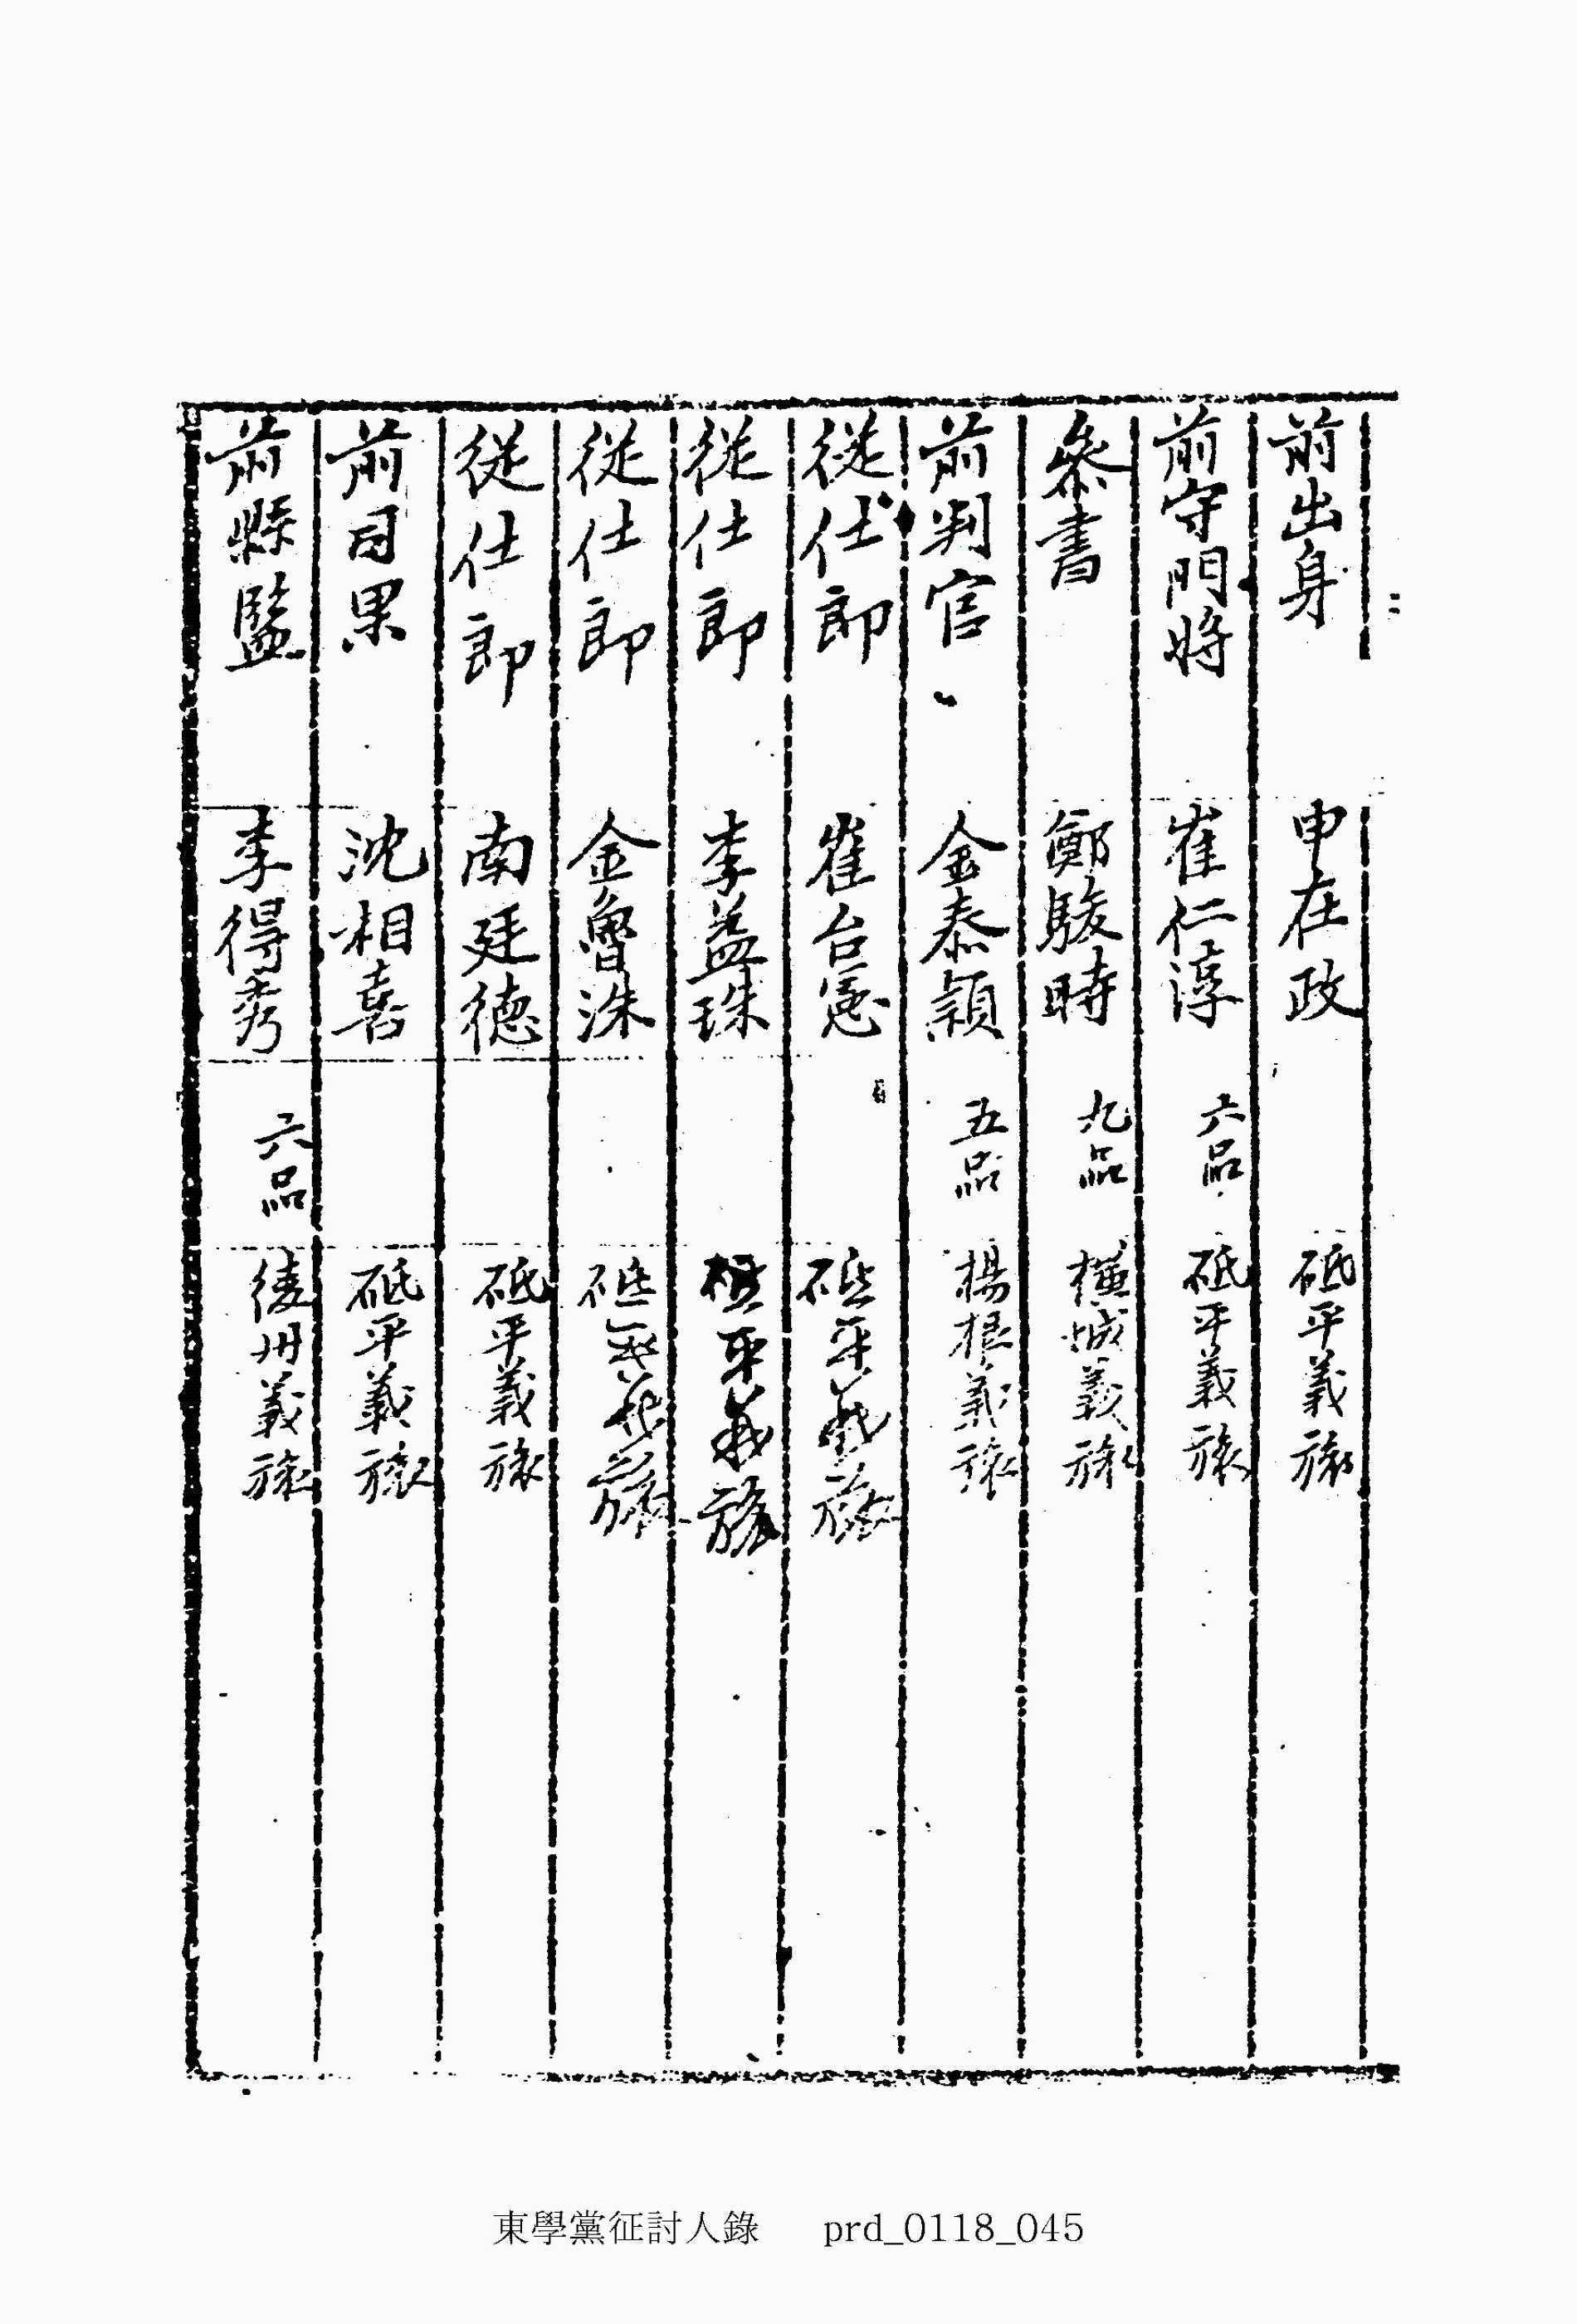 前出身 申在政 砥平義旅
前守門將 崔仁淳 六品 砥平義旅
參書 鄭駿時 九品 橫城義旅
前判官 金泰潁 五品 楊根義旅
從仕郎 崔台憲 砥平義旅
從仕郎 李益珠 砥平義旅
從仕郎 金魯洙 砥平義旅
從仕郎 南廷德 砥平義旅
前司果 沈相喜 砥平義旅
前縣監 李得秀 六品 綾州義旅
東學黨征討人錄 prd_0118_045